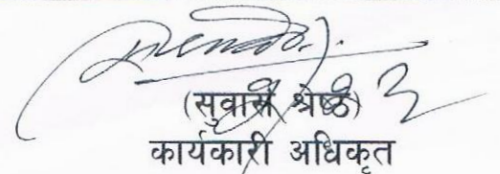 (सुवास श्रेष्ठ)
कार्यकारी अधिकृत